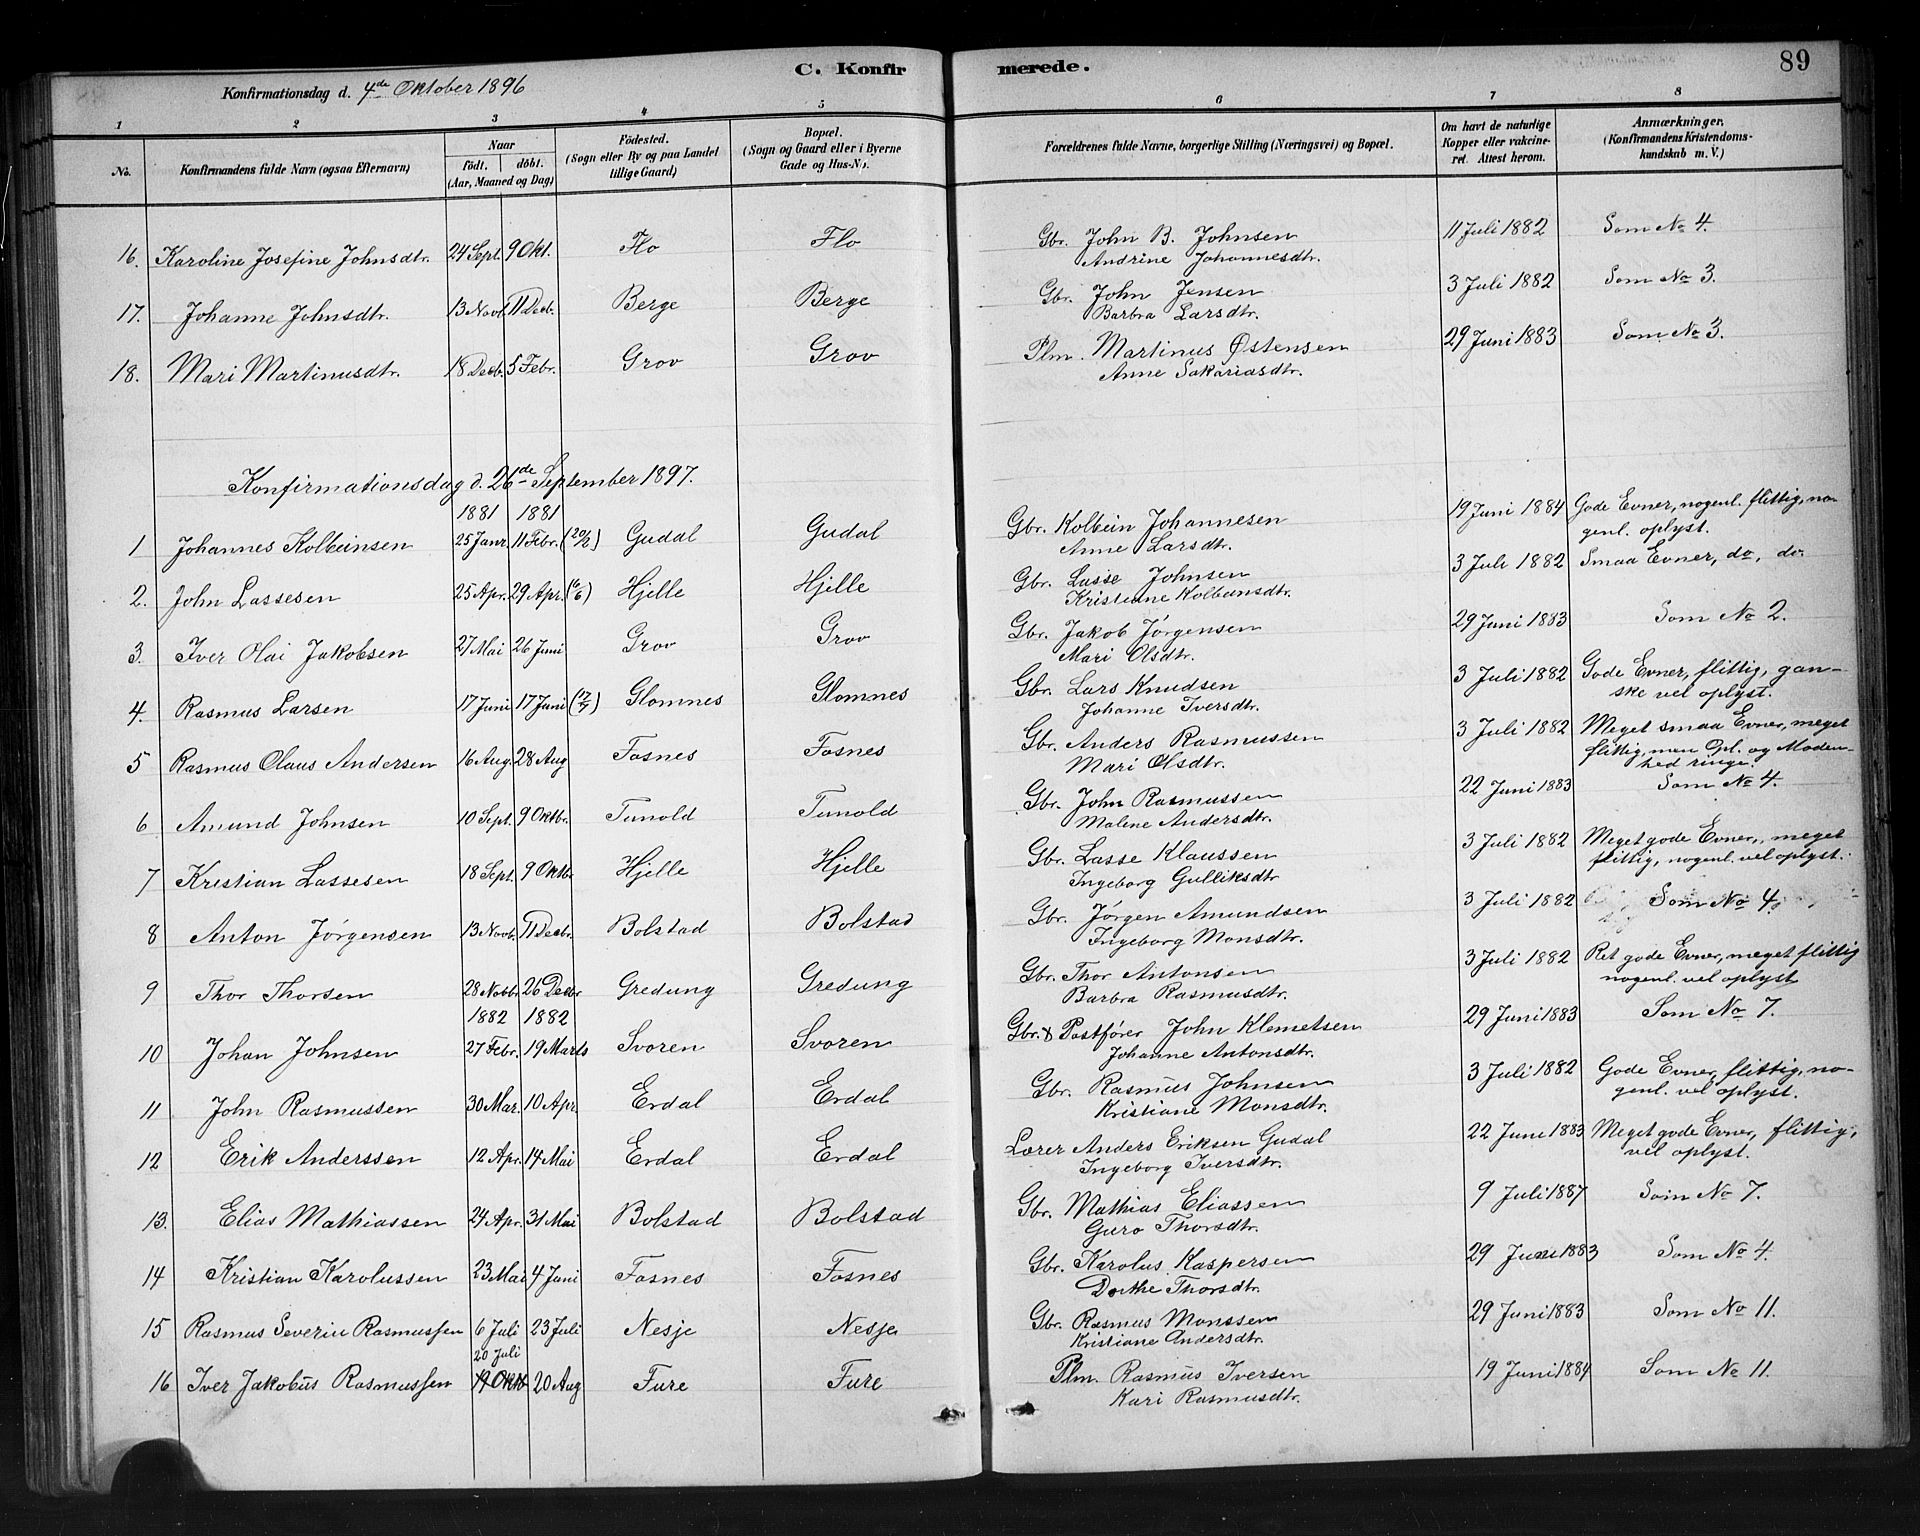 C. Konfirmerede. 89
Konfirmationsdag d. 4de Oktober 1896
1 2 3 4 5 6 7 8
No. Konfirmandens fulde Navn (ogsaa Efternavn) Naar födt. döbt. (Aar, Maaned og Dag) Födested. (Sogn eller By og paa Landet tillige Gaard) Bopæl. (Sogn og Gaard eller i Byerne Gade og Hus-No. Forældrenes fulde Navne, borgerlige Stilling (Næringsvei) og Bopæl. Om havt de naturlige Kopper eller vakcineret. Attest herom. Anmærkninger. (Konfirmandens Kristendomskundskab m. V.)
16. Karoline Josefine Johnsdtr. 24 Sept. 9 Okt. Flo Flo Gbr. John B. Johnsen 11 Juli 1882 Som No 4.
Andrine Johannesdtr.
17. Johanne Johnsdtr. 13 Novb. 11 Decb. Berge Berge Gbr. John Jensen 3 Juli 1882 Som No 3.
Barbra Larsdtr.
18. Mari Martinusdtr. 18 Decb. 5 Febr. Grov Grov Plm. Martinus Østensen 29 Juni 1883 Som No 3.
Anne Sakariasdtr.
Konfirmationsdag d. 26de September 1897.
1881 1881
1 Johannes Kolbeinsen 25 Janr. 11 Febr. (20/2) Gudal Gudal Gbr. Kolbein Johannesen 19 Juni 1884 Gode Evner, nogenl. flittig, no-
Anne Larsdtr. genl. oplyst.
2. John Lassesen 25 Apr. 29 Apr. (6/6) Hjelle Hjelle Gbr. Lasse Johnsen 3 Juli 1882 Smaa Evner, do, do
Kristiane Kolbeinsdtr.
3. Iver Olai Jakobsen 27 Mai 26 Juni Grov Grov Gbr. Jakob Jørgensen 29 Juni 1883 Som No 2.
Mari Olsdtr.
4. Rasmus Larsen 17 Juni 17 Juni (17/7) Glomnes Glomnes Gbr. Lars Knudsen 3 Juli 1882 Gode Evner, flittig, gan-
Johanne Iversdtr. ske vel oplyst.
5 Rasmus Olaus Andersen 16 Aug. 28 Aug Fosnes Fosnes Gbr. Anders Rasmussen 3 Juli 1882 Meget smaa Evner, meget
Mari Olsdtr. flittig, men Opl. og Moden-
hed ringe.
6 Amund Johnsen 10 Sept. 9 Oktbr. Tunold Tunold Gbr. John Rasmussen 22 Juni 1883 Som No 4.
Malene Andersdtr.
7 Kristian Lassesen 18 Sept. 9 Oktbr Hjelle Hjelle Gbr. Lasse Klaussen 3 Juli 1882 Meget gode Evner, meget
Ingeborg Gulliksdtr flittig, nogenl. vel oplyst.
8 Anton Jørgensen 13 Novb. 11 Decbr. Bolstad Bolstad Gbr. Jørgen Amundsen 3 Juli 1882 Som No 4.
Ingeborg Monsdtr.
9 Thor Thorsen 28 Novbr. 26 Decbr Gredung Gredung Gbr. Thor Antonsen 3 Juli 1882 Ret gode Evner, meget flittig
Barbra Rasmusdtr. nogenl. vel oplyst
1882 1882
10 Johan Johnsen 27 Febr. 19 Marts Svoren Svoren Gbr. & Postfører John Klemetsen 29 Juni 1883 Som No 7.
Johanne Antonsdtr.
11 John Rasmussen 30 Mar. 10 Apr Erdal Erdal Gbr. Rasmus Johnsen 3 Juli 1882 Gode Evner, flittig, no-
Kristiane Monsdtr. genl. vel oplyst.
12 Erik Anderssen 12 Apr. 14 Mai Erdal Erdal Lærer Anders Eriksen Gudal 22 Juni 1883 Meget gode Evner, flittig,
Ingeborg Iversdtr. vel oplyst.
13. Elias Mathiassen 24 Apr. 31 Mai Bolstad Bolstad Gbr. Mathias Eliassen 9 Juli 1887 Som No 7.
Guro Thorsdtr.
14 Kristian Karolussen 23 Mai 4 Juni Fosnes Fosnes Gbr. Karolus Kaspersen 29 Juni 1883 Som No 4.
Dorthe Thorsdtr.
15 Rasmus Severin Rasmussen 6 Juli 23 Juli Nesje Nesje Gbr. Rasmus Monssen 29 Juni 1883 Som No 11.
Kristiane Andersdtr.
20 Juli
16 Iver Jakobus Rasmussen 19 Okt 20 Aug Fure Fure Plm. Rasmus Iversen 19 Juni 1884 Som No 11.
Kari Rasmusdtr.